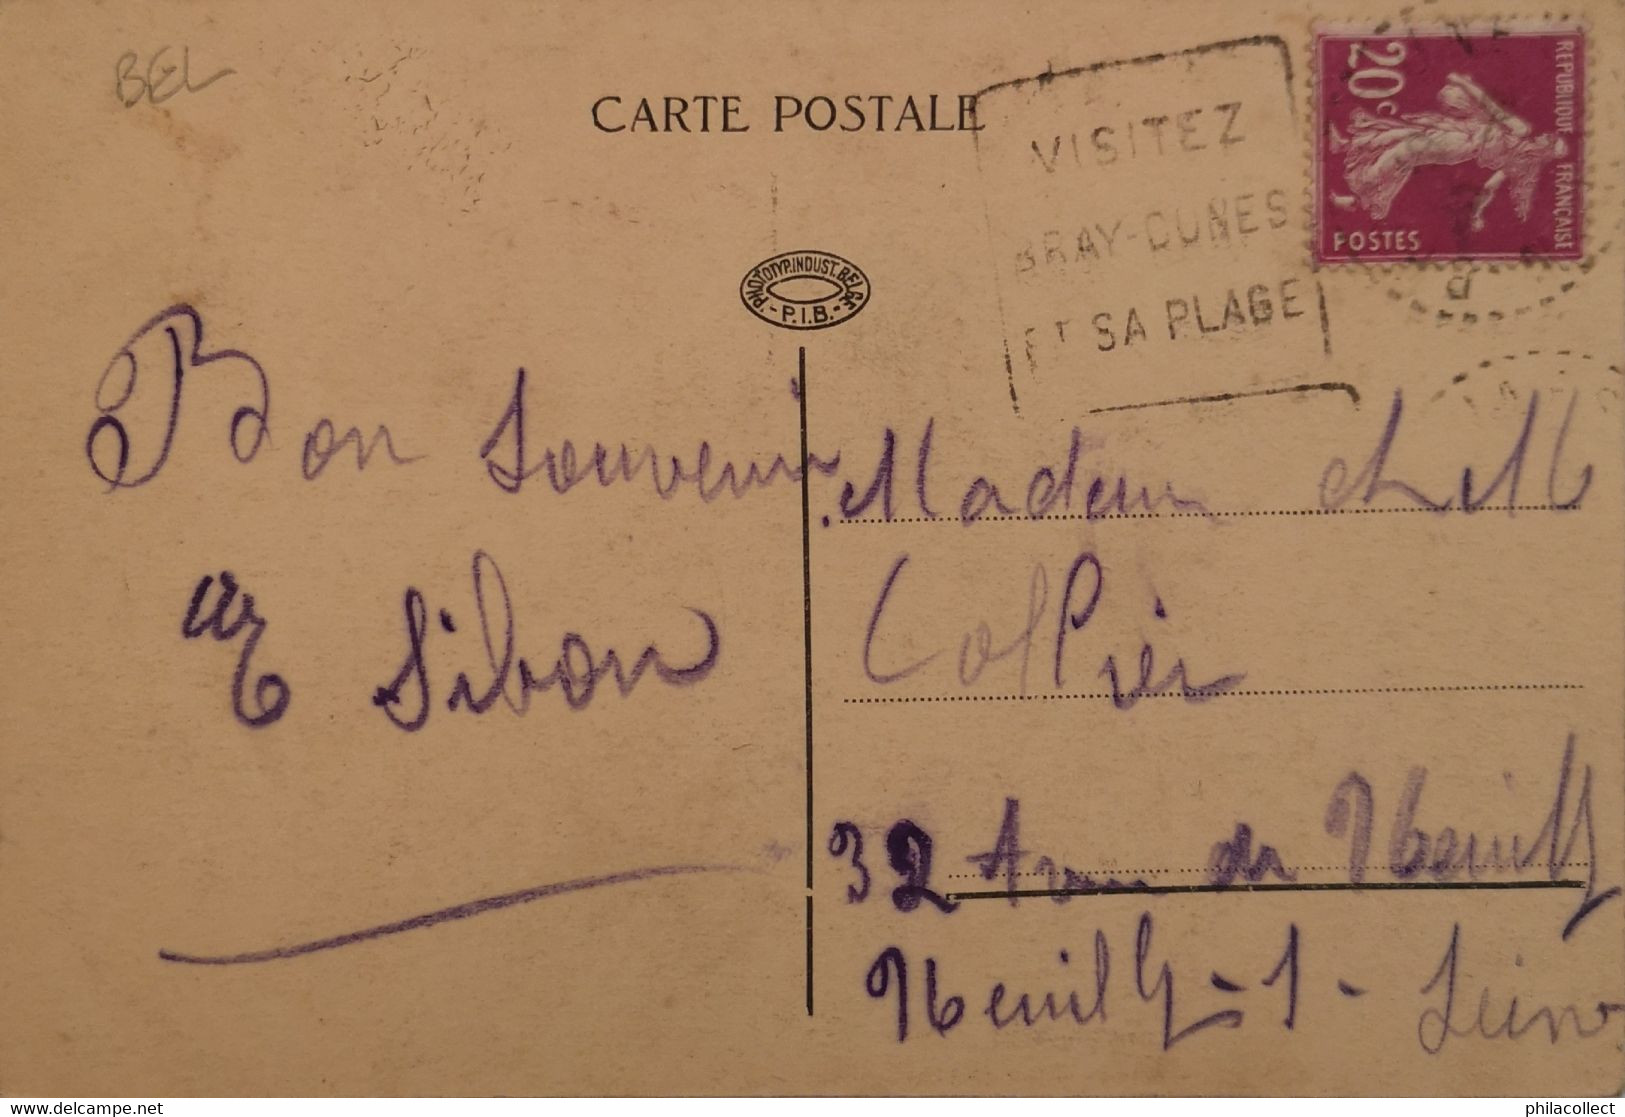 BEL
CARTE POSTALE
VISITEZ
BRAY-DUNES
ET SA PLAGE
20c
REPUBLIQUE FRANÇAISE
POSTES
PHOTOTYP. INDUST. BELGE
- P.I.B. -
Bon souvenir
Sibon
Madam et M
32 de Neuilly
Neuilly - s - Seine
www.delcampe.net
philacollect